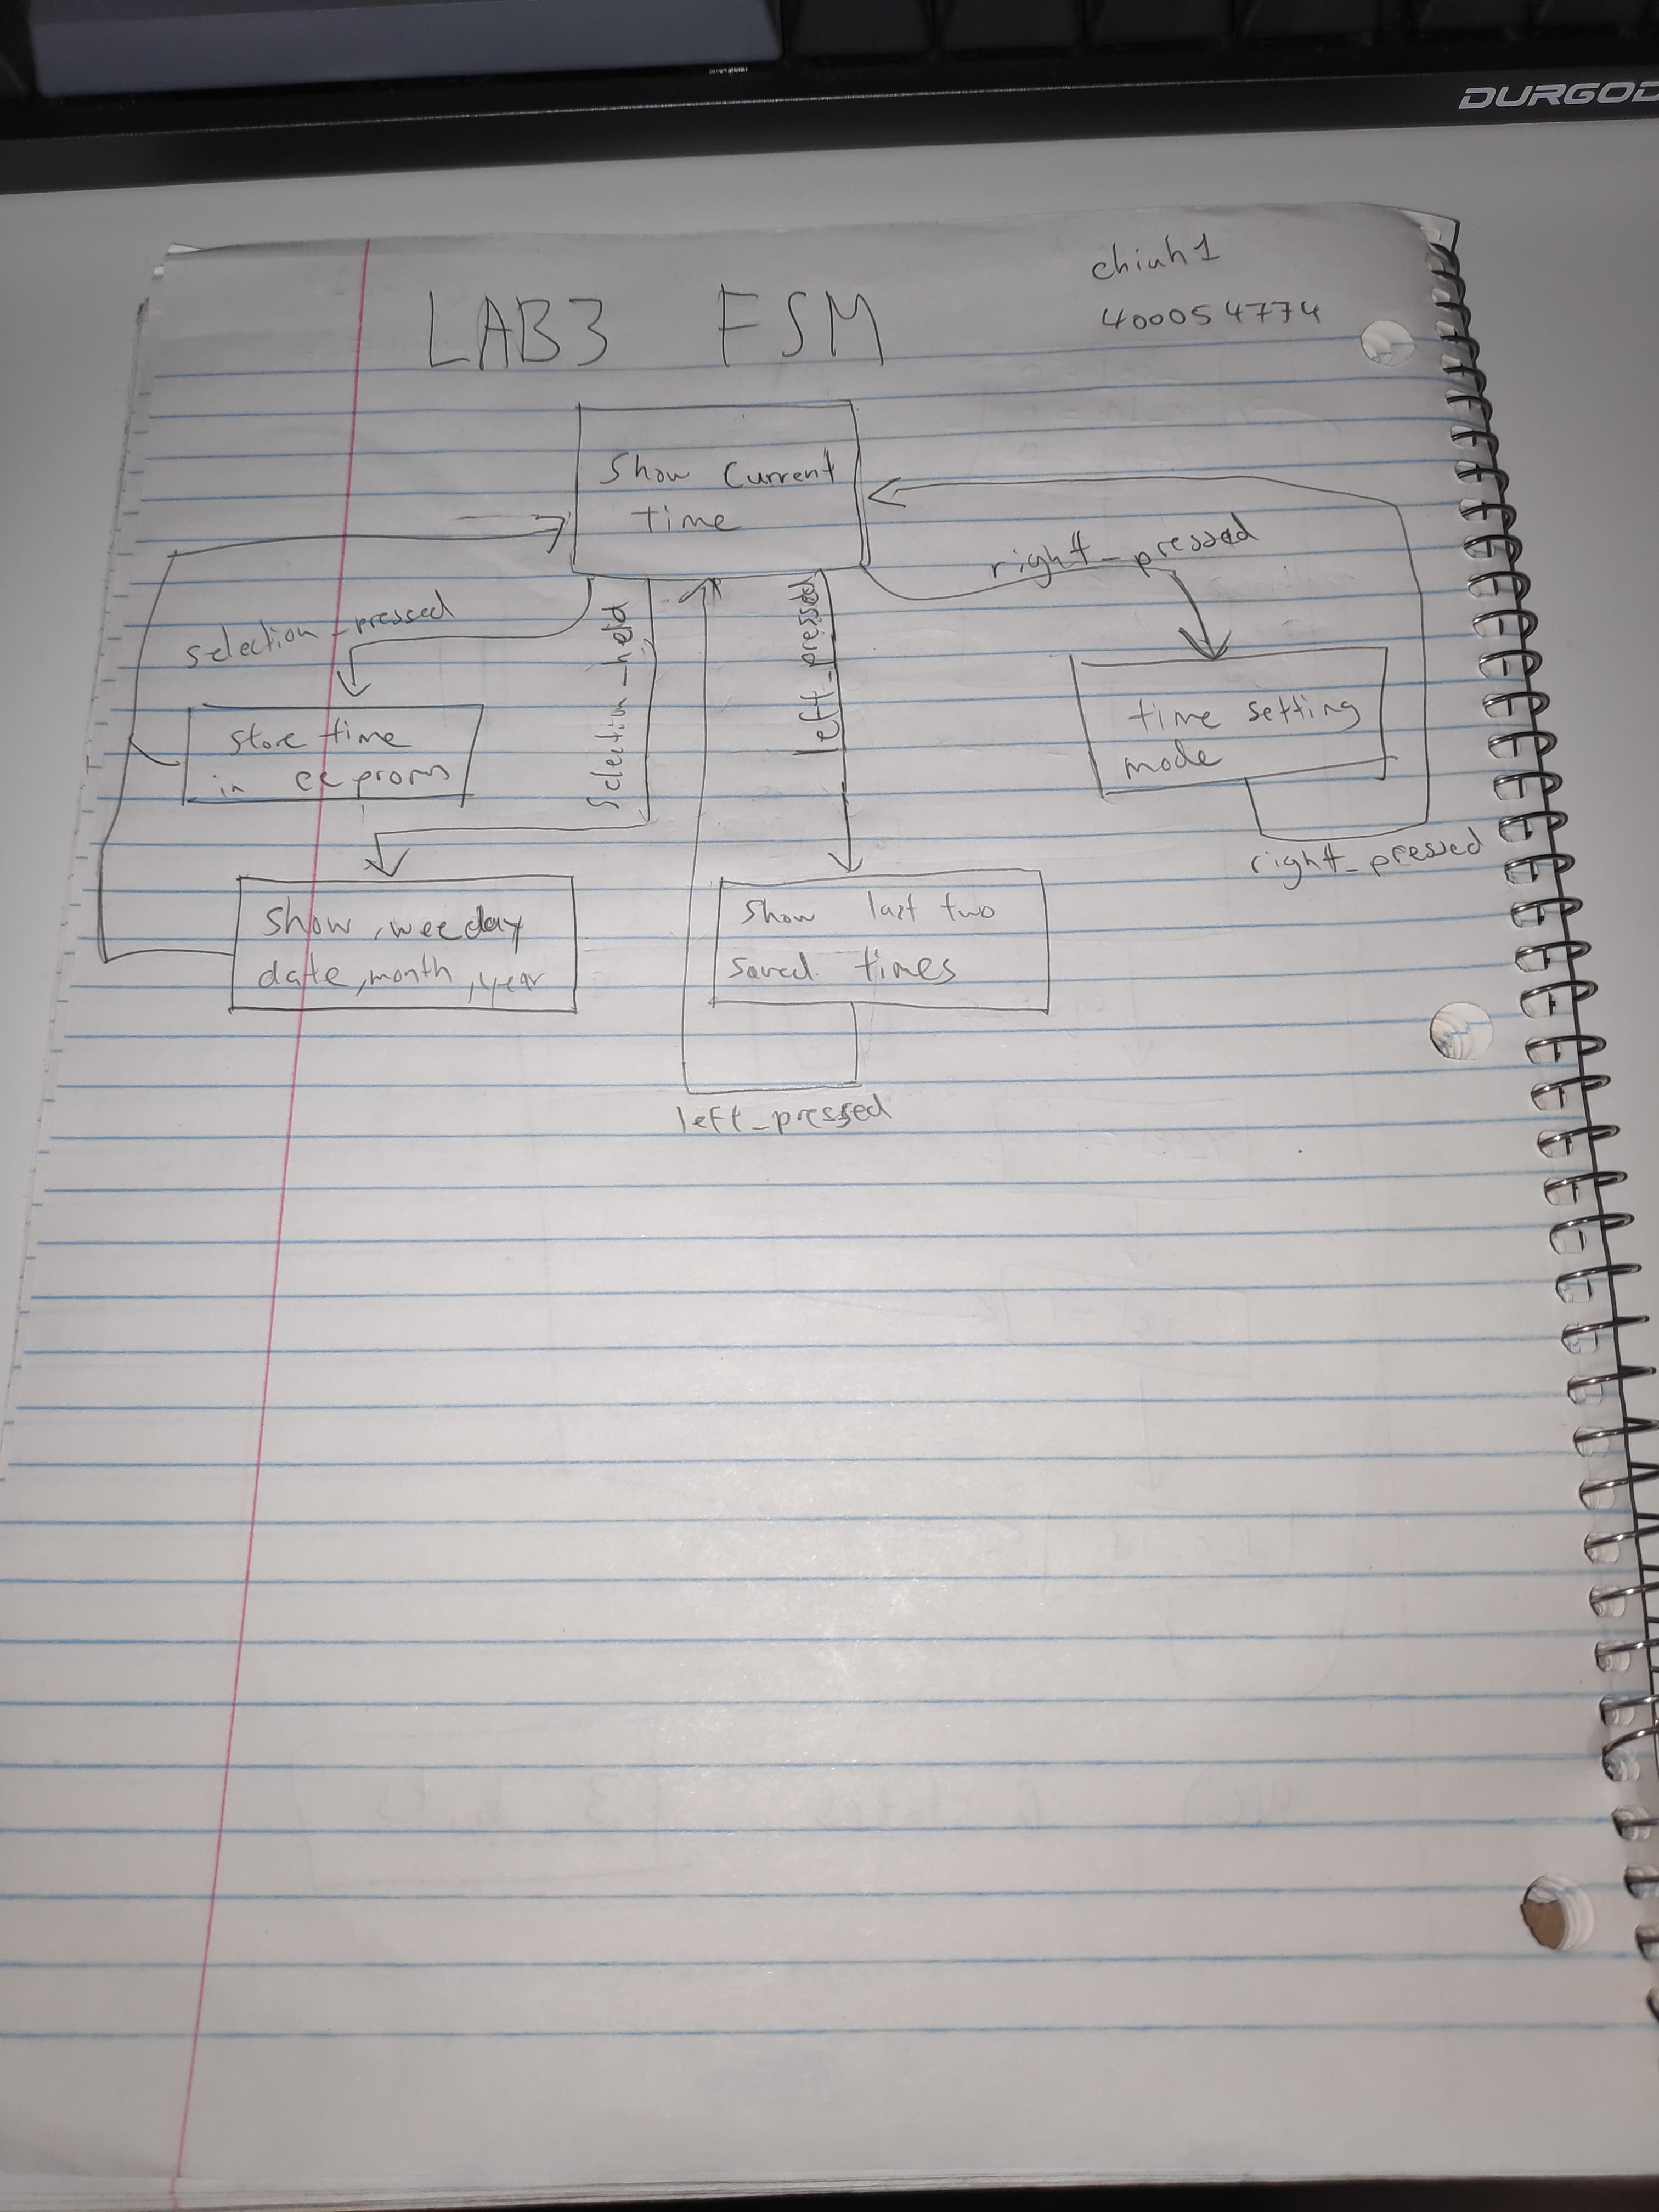 DURGOD
chiuh1
400054774
LAB3 FSM
Show Current
time
right_pressed
selection_pressed
selection_held
left_pressed
store time
in eeprom
time setting
mode
right_pressed
Show, weeday
date, month, year
Show last two
saved times
left_pressed